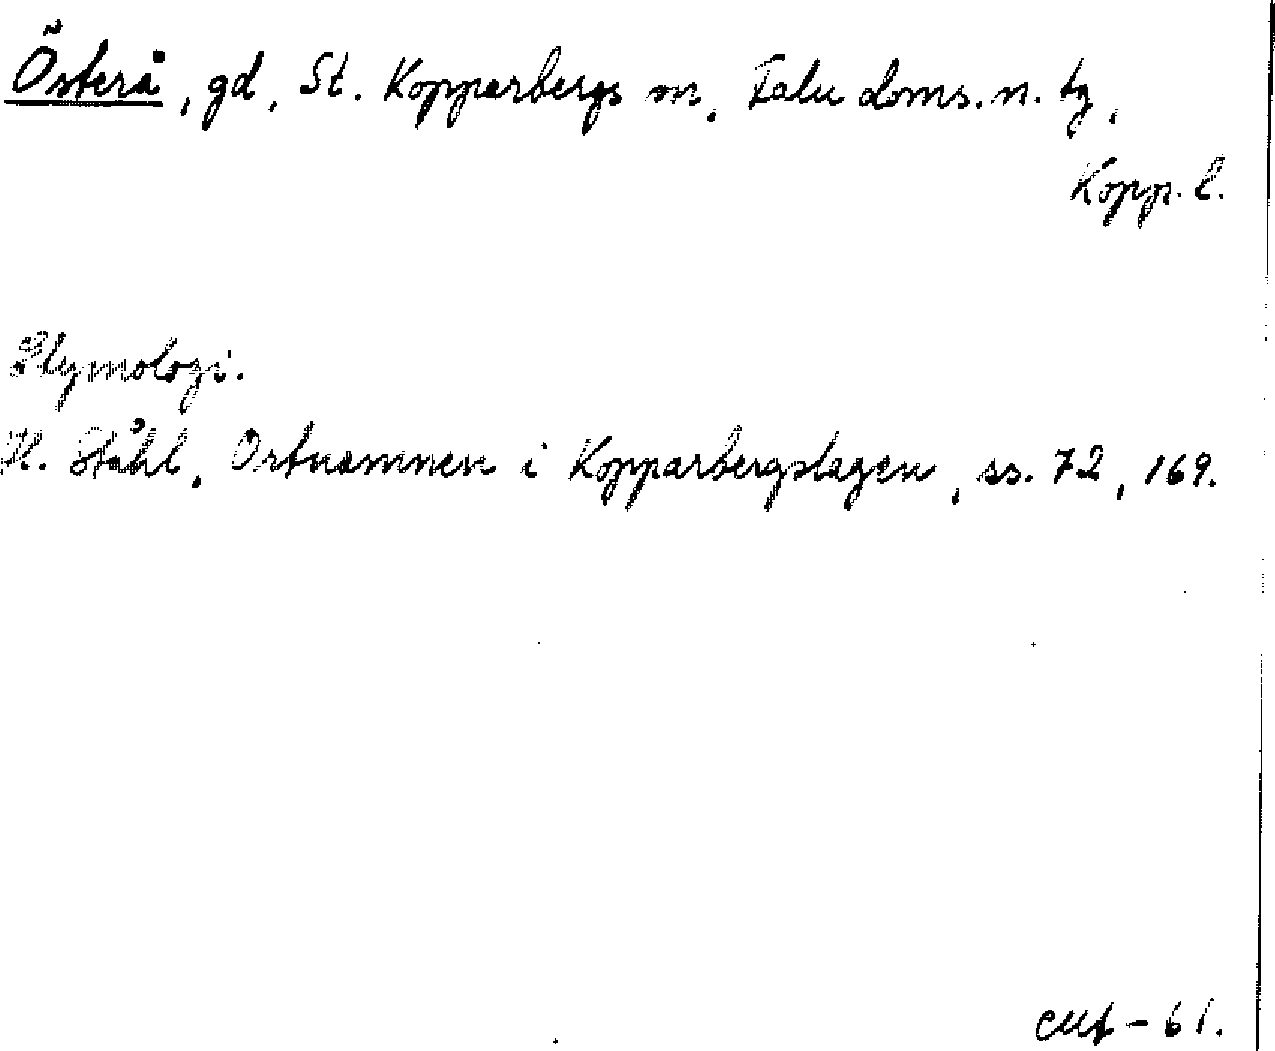 Österå, gd, St. Kopparbergs sn, Falu doms. n. tg,
Kopp. l.
Etymologi.
H. Ståhl, Ortnamnen i Kopparbergslagen, ss. 72, 169.
-61.